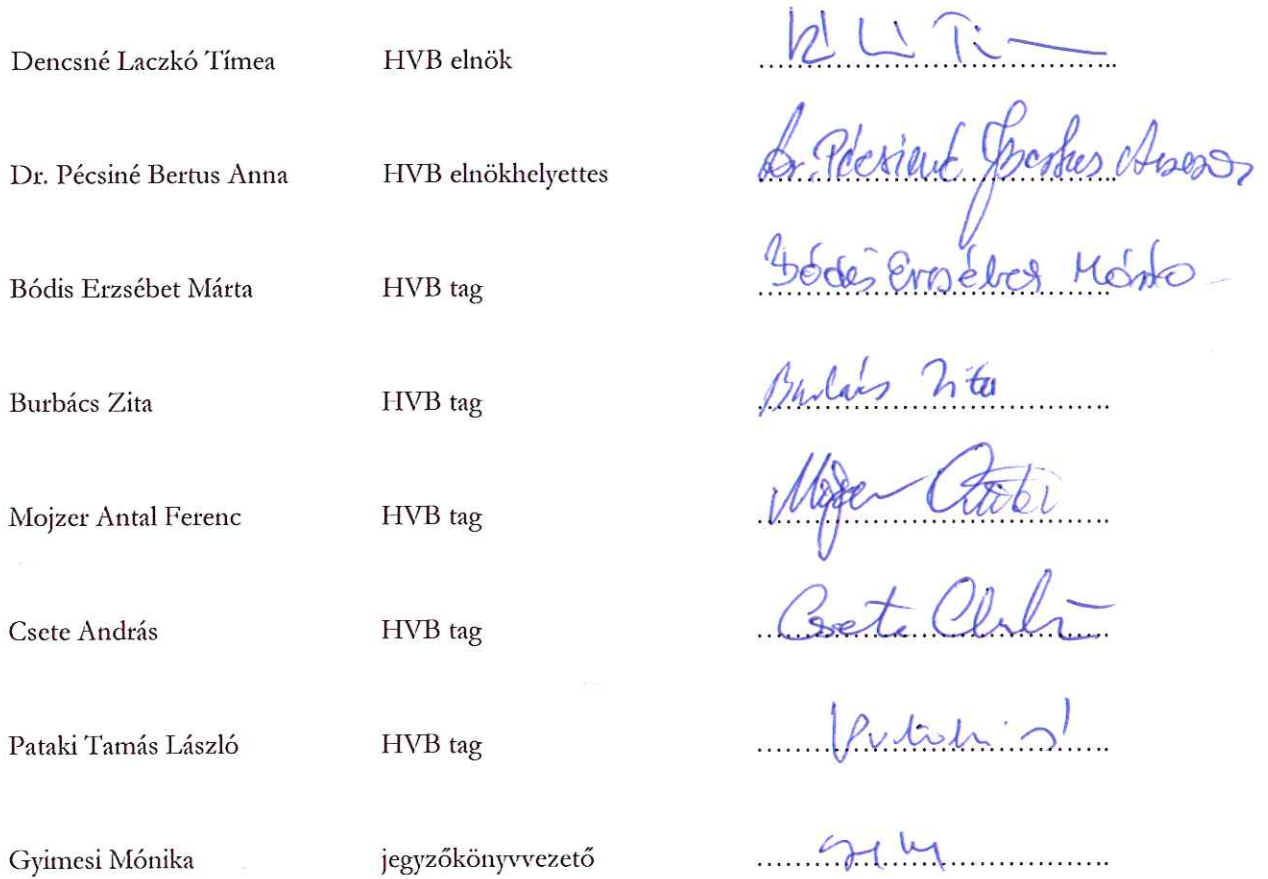 Dencsné Laczkó Tímea HVB elnök
Dr. Pécsiné Bertus Anna HVB elnökhelyettes Dr. Pécsiné Bertus Anna
Bódis Erzsébet Márta HVB tag Bódis Erzsébet Márta
Burbács Zita HVB tag Burbács Zita
Mojzer Antal Ferenc HVB tag Mojzer
Csete András HVB tag Csete
Pataki Tamás László HVB tag
Gyimesi Mónika jegyzőkönyvvezető